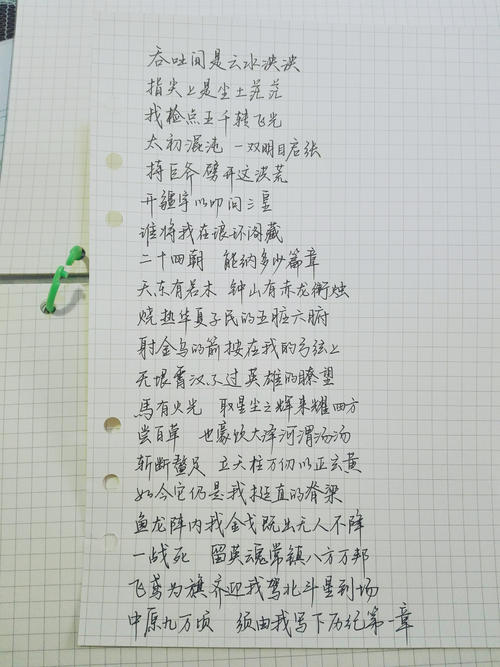 吞吐间是云水泱泱
指尖上是尘土茫茫
我检点五千转飞光
太初混沌 一双明目启张
持巨斧劈开这洪荒
开疆宇以叩问三皇
谁将我在琅环阁藏
二十四朝 能纳多少篇章
天东有若木 钟山有赤龙衔烛
烧热华夏子民的五脏六腑
射金乌的箭 按在我的弓弦上
无垠霄汉不过英雄的瞭望
焉有火光 取星尘之辉来耀四方
尝百草 也豪饮大泽河渭汤汤
斩断鳌足 立天柱万仞以正玄黄
如今它仍是我挺直的脊梁
鱼龙阵内我金戈既出无人不降
一战死 留英魂常镇八方万邦
飞鸢为旗齐迎我驾北斗星到场
中原九万顷 须由我写下历纪第一章